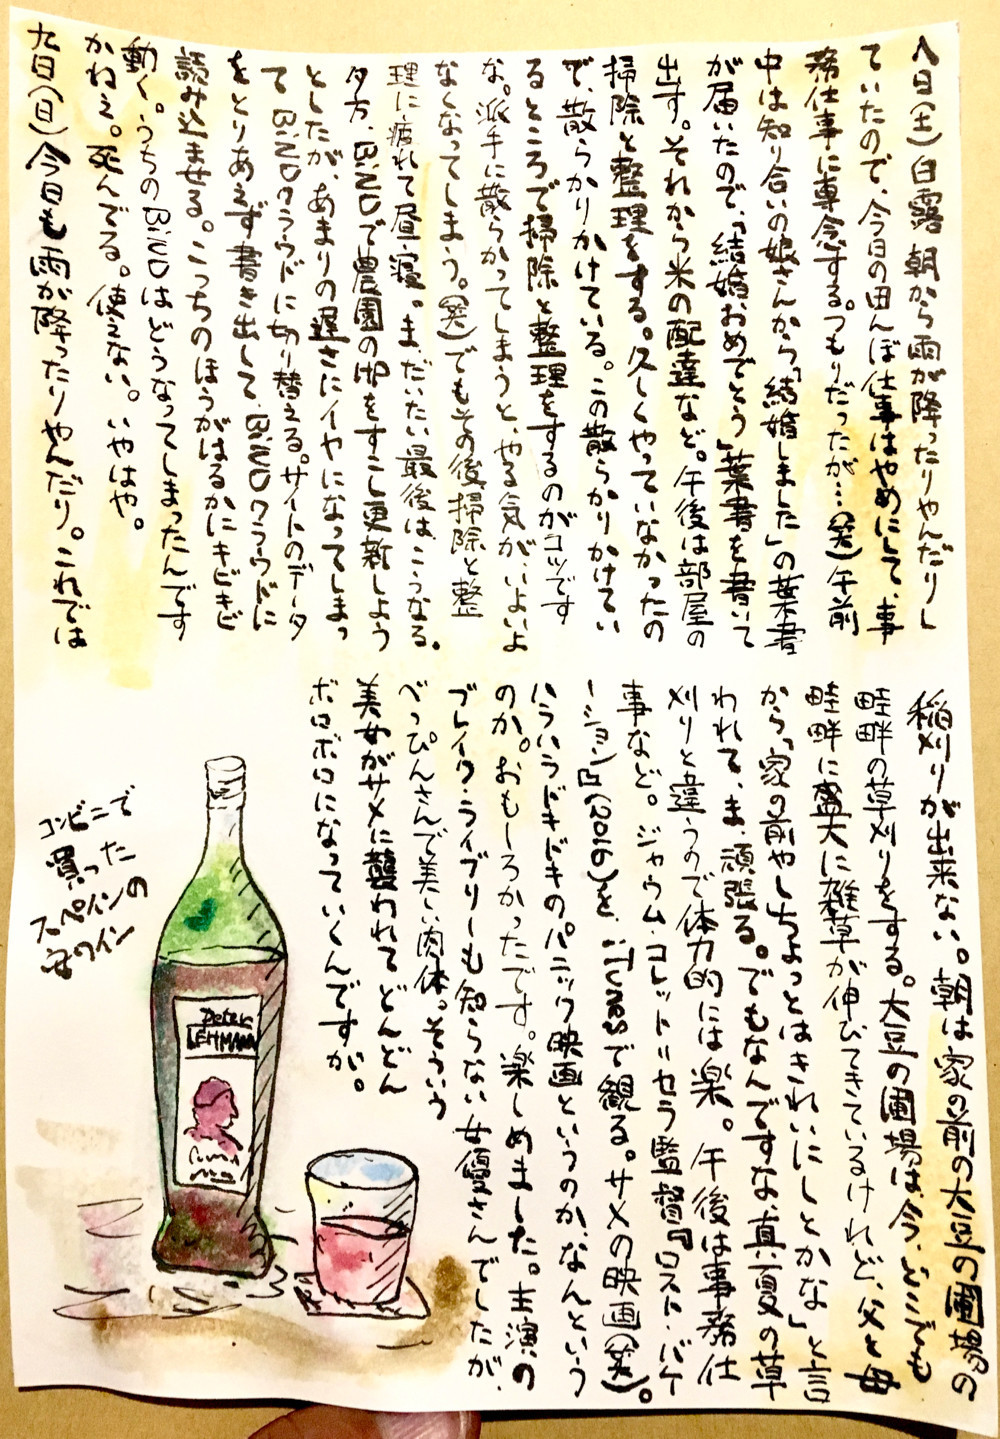 八日(土)白露 朝から雨が降ったりやんだりし
ていたので、今日の田んぼ仕事はやめにして、事
務仕事に専念する。つもりだったが…(笑)午前
中は知り合いの娘さんから「結婚しました」の葉書
が届いたので、「結婚おめでとう」葉書を書いて
出す。それから米の配達など。午後は部屋の
掃除と整理をする。久しくやっていなかったの
で、散らかりかけている。この散らかりかけてい
るところで掃除と整理をするのがコツです
な。派手に散らかってしまうと、やる気が、いよいよ
なくなってしまう。(笑)でもその後、掃除と整
理に疲れて昼寝。まだいたい最後は、こうなる。
夕方、BiNDで農園のHPをすこし更新しよう
としたが、あまりの遅さにイヤになってしまっ
て BiNDクラウドに切り替える。サイトのデータ
をとりあえず書き出して、BiNDクラウドに
読み込ませる。こっちのほうがはるかにキビキビ
動く。うちのBiNDはどうなってしまったんです
かねえ。死んでる。使えない。いやはや。
九日(日)今日も雨が降ったりやんだり。これでは
稲刈りが出来ない。朝は家の前の大豆の圃場の
畦畔の草刈りをする。大豆の圃場は、今、どこでも
畦畔に盛大に雑草が伸びてきているけれど、父と母
から「家の前やしちょっとはきれいにしとかな」と言
われて、ま、頑張る。でもなんですな、真夏の草
刈りと違うので体力的には楽。午後は事務仕
事など。ジャウム・コレット=セラ監督『ロスト・バケ
ーション』(2016)を、iTunesで観る。サメの映画(笑)。
ハラハラドキドキのパニック映画というのか、なんという
のか。おもしろかったです。楽しめました。主演の
ブレイク・ライブリーも知らない女優さんでしたが、
べっぴんさんで美しい肉体。そういう
美女がサメに襲われてどんどん
ボロボロになっていくんですが。
コンビニで
買った
スペインの
安ワイン
Peter
LEHMANN